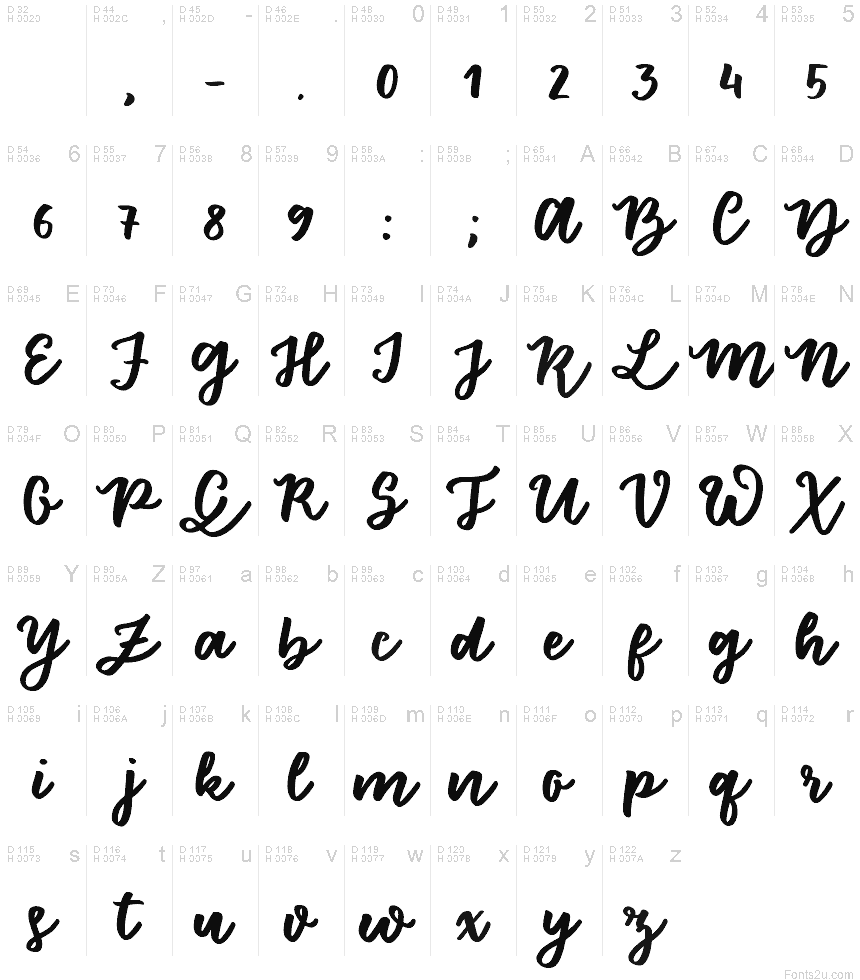 D 32 D 44 , D 45 - D 46 . D 48 0 D 49 1 D 50 2 D 51 3 D 52 4 D 53 5
H 0020 H 002C H 002D H 002E H 0030 H 0031 H 0032 H 0033 H 0034 H 0035
, - . 0 1 2 3 4 5
D 54 6 D 55 7 D 56 8 D 57 9 D 58 : D 59 ; D 65 A D 66 B D 67 C D 68 D
H 0036 H 0037 H 0038 H 0039 H 003A H 003B H 0041 H 0042 H 0043 H 0044
6 7 8 9 : ; A B C D
D 69 E D 70 F D 71 G D 72 H D 73 I D 74 J D 75 K D 76 L D 77 M D 78 N
H 0045 H 0046 H 0047 H 0048 H 0049 H 004A H 004B H 004C H 004D H 004E
E F G H I J K L M N
D 79 O D 80 P D 81 Q D 82 R D 83 S D 84 T D 85 U D 86 V D 87 W D 88 X
H 004F H 0050 H 0051 H 0052 H 0053 H 0054 H 0055 H 0056 H 0057 H 0058
O P Q R S T U V W X
D 89 Y D 90 Z D 97 a D 98 b D 99 c D 100 d D 101 e D 102 f D 103 g D 104 h
H 0059 H 005A H 0061 H 0062 H 0063 H 0064 H 0065 H 0066 H 0067 H 0068
Y Z a b c d e f g h
D 105 i D 106 j D 107 k D 108 l D 109 m D 110 n D 111 o D 112 p D 113 q D 114 r
H 0069 H 006A H 006B H 006C H 006D H 006E H 006F H 0070 H 0071 H 0072
i j k l m n o p q r
D 115 s D 116 t D 117 u D 118 v D 119 w D 120 x D 121 y D 122 z
H 0073 H 0074 H 0075 H 0076 H 0077 H 0078 H 0079 H 007A
s t u v w x y z
Fonts2u.com